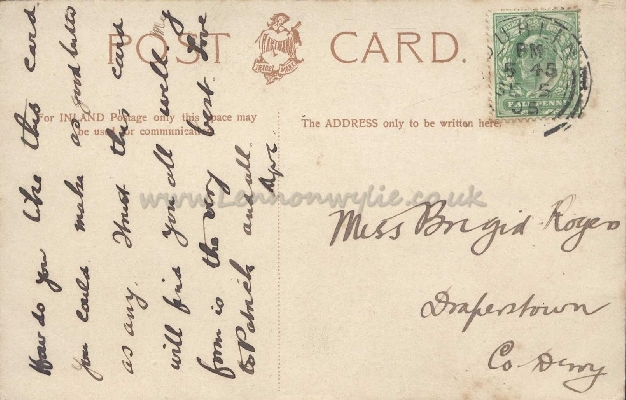 POST CARD.
For INLAND Postage only this space may
be used for communication.
The ADDRESS only to be written here.
HALFPENNY
PM
5 45
SE 5
How do you like this card
you could make as good butter
as any. Trust this card
will find you all well. My
form is the very best. Love
to Patrick and all
Miss Brigid Rogers
Draperstown
Co Derry
www.Lennonwylie.co.uk